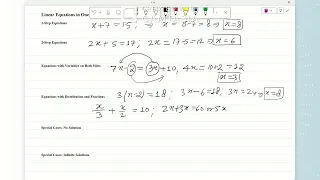 Linear Equations in One
x+7=15; x=8-7=8 x=8
1-Step Equations
2-Step Equations
2x+5=17; 2x=17-5=12 x=6
Equations with Variables on Both Sides
7x-2=3x+10, 4x=10+2=12
x=3
Equations with Distribution and Fractions
3(x-2)=18; 3x-6=18, 3x=24 x=8
x/3+x/2=10; 2x+3x=60 or 5x
Special Cases: No Solution
Special Cases: Infinite Solutions